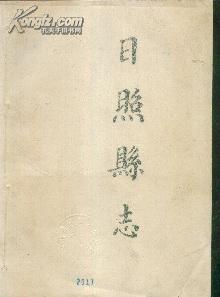 Kongfz.com
孔夫子旧书网
日照縣志
2017